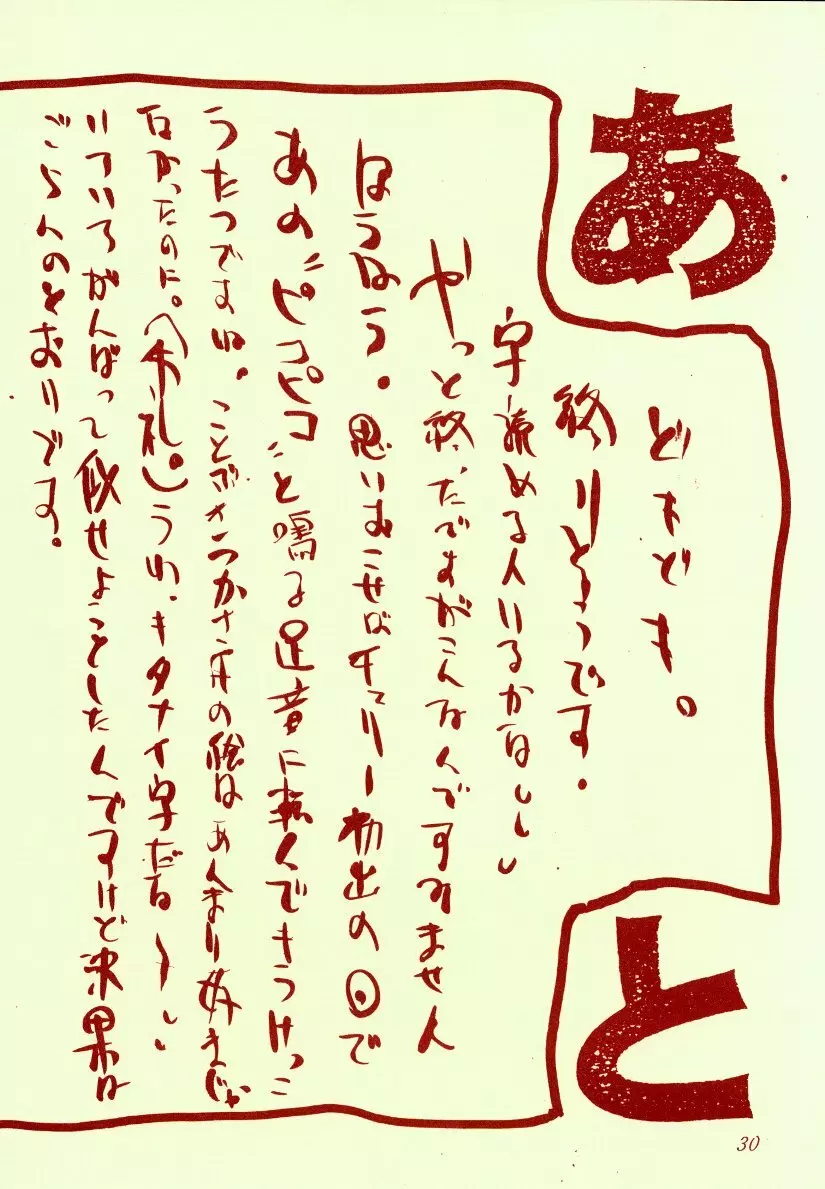 あと
どもども。
終りどうです。
字読める人いるかなしし
やっと終ったですがこんなんですみません
ほうほう。思いおこせばチェリー初出の回で
あの"ピコピコ"と鳴る足音に転んでもうけっこ
うたつですね。ことぶきつかさ
の絵はあんまり好きじゃ
なかったのに。(失礼。)うわ、キタナイ字だな〜しし
いろいろがんばって似せようとしたんですけど結果は
ごらんのとおりです。
30